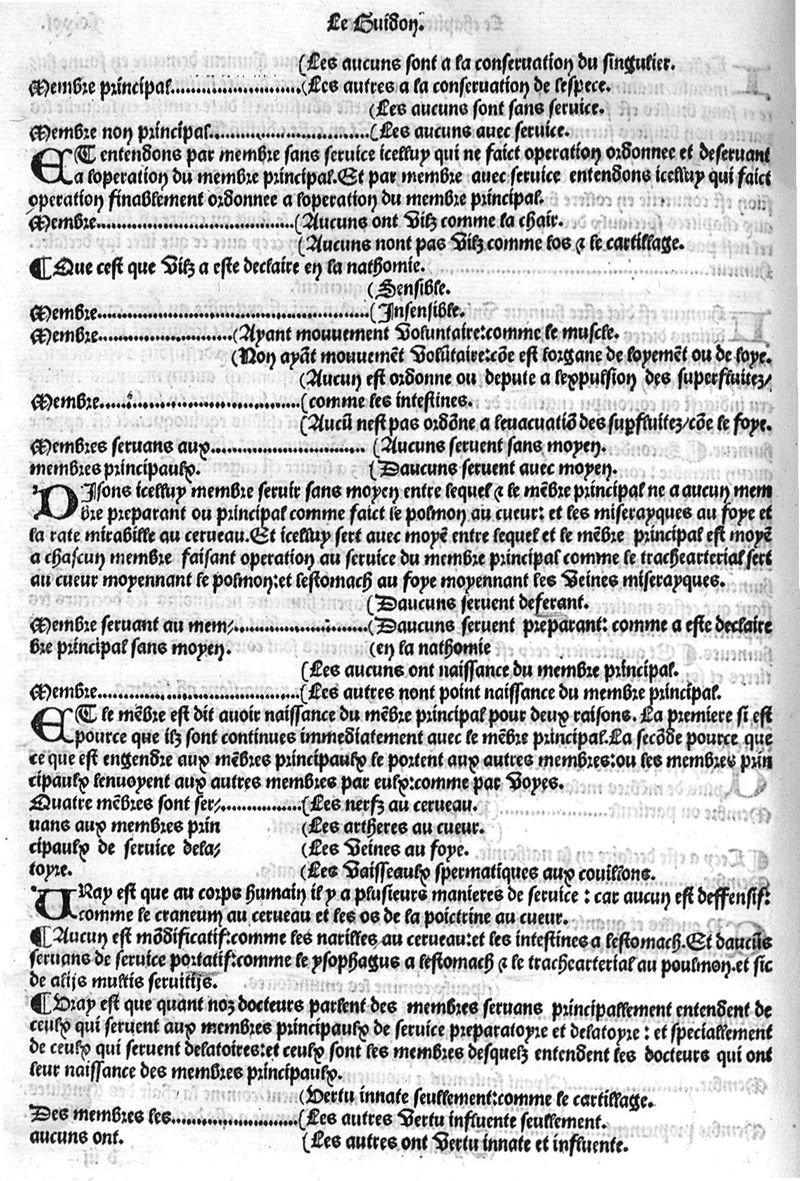 Le Guidon.
(Les aucuns sont a la conseruation du singulier.
Membre principal........................(Les autres a la conseruation de lespece.
(Les aucuns sont sans seruice.
Membre non principal..............................(Les aucuns auec seruice.
ET entendons par membre sans seruice icelluy qui ne faict operation ordonnee et deseruant
a loperation du membre principal.Et par membre auec seruice entendons icelluy qui faict
operation finablement ordonnee a loperation du membre principal.
Membre......................................(Aucuns ont Vilz comme la chair.
(Aucuns nont pas Vilz comme los ⁊ le cartillage.
¶Que cest que Vilz a este declaire en la nathomie.
(Sensible.
Membre....................................................(Insensible.
Membre..........................(Ayant mouuement Voluntaire:comme le muscle.
(Non ayãt mouuemẽt Volũtaire:cõe est lorgane de loyemẽt ou de loye.
(Aucun est ordonne ou depute a lexpulsion des superfluitez/
Membre......................................(comme les intestines.
(Aucũ nest pas ordõne a leuacuatiõ des supfluitez/cõe le foye.
Membres seruans aux.............................. (Aucuns seruent sans moyen.
membres principaulx. (Daucuns seruent auec moyen.
DIsons icelluy membre seruir sans moyen entre lequel ⁊ le mẽbre principal ne a aucun mem
bre preparant ou principal comme faict le polmon au cueur: et les miserayques au foye et
la rate mirabille au cerueau.Et icelluy sert auec moyẽ entre lequel et le mẽbre principal est moyẽ
a chascun membre faisant operation au seruice du membre principal comme le trachearterial sert
au cueur moyennant le polmon:et lestomach au foye moyennant les Veines miserayques.
(Daucuns seruent deferant.
Membre seruant au mem/..........................(Daucuns seruent preparant: comme a este declaire
bre principal sans moyen. (en la nathomie
(Les aucuns ont naissance du membre principal.
Membre......................................(Les autres nont point naissance du membre principal.
ET le mẽbre est dit auoir naissance du mẽbre principal pour deux raisons. La premiere si est
pource que ilz sont continues immediatement auec le mẽbre principal.La secõde pource que
ce que est engendre aux mẽbres principaulx le portent aux autres membres:ou les membres prin
cipaulx lenuoyent aux autres membres par eulx:comme par Voyes.
Quatre mẽbres sont ser/................(Les nerfz au cerueau.
uans aux membres prin (Les artheres au cueur.
cipaulx de seruice dela/ (Les Veines au foye.
toyre. (Les Vaisseaulx spermatiques aux couillons.
URay est que au corps humain il y a plusieurs manieres de seruice : car aucun est deffensif:
comme le craneum au cerueau et les os de la poictrine au cueur.
¶Aucun est mõdificatif:comme les narilles au cerueau:et les intestines a lestomach.Et daucũs
seruans de seruice portatif:comme le ysophagus a lestomach ⁊ le trachearterial au poulmon.et sic
de alijs multis seruitijs.
¶Vray est que quant noz docteurs parlent des membres seruans principallement entendent de
ceulx qui seruent aux membres principaulx de seruice preparatoyre et delatoyre : et speciallement
de ceulx qui seruent delatoires:et ceulx sont les membres desquelz entendent les docteurs qui ont
leur naissance des membres principaulx.
(Vertu innate seullement:comme le cartillage.
Des membres les........................(Les autres Vertu influente seullement.
aucuns ont. (Les autres ont Vertu innate et influente.